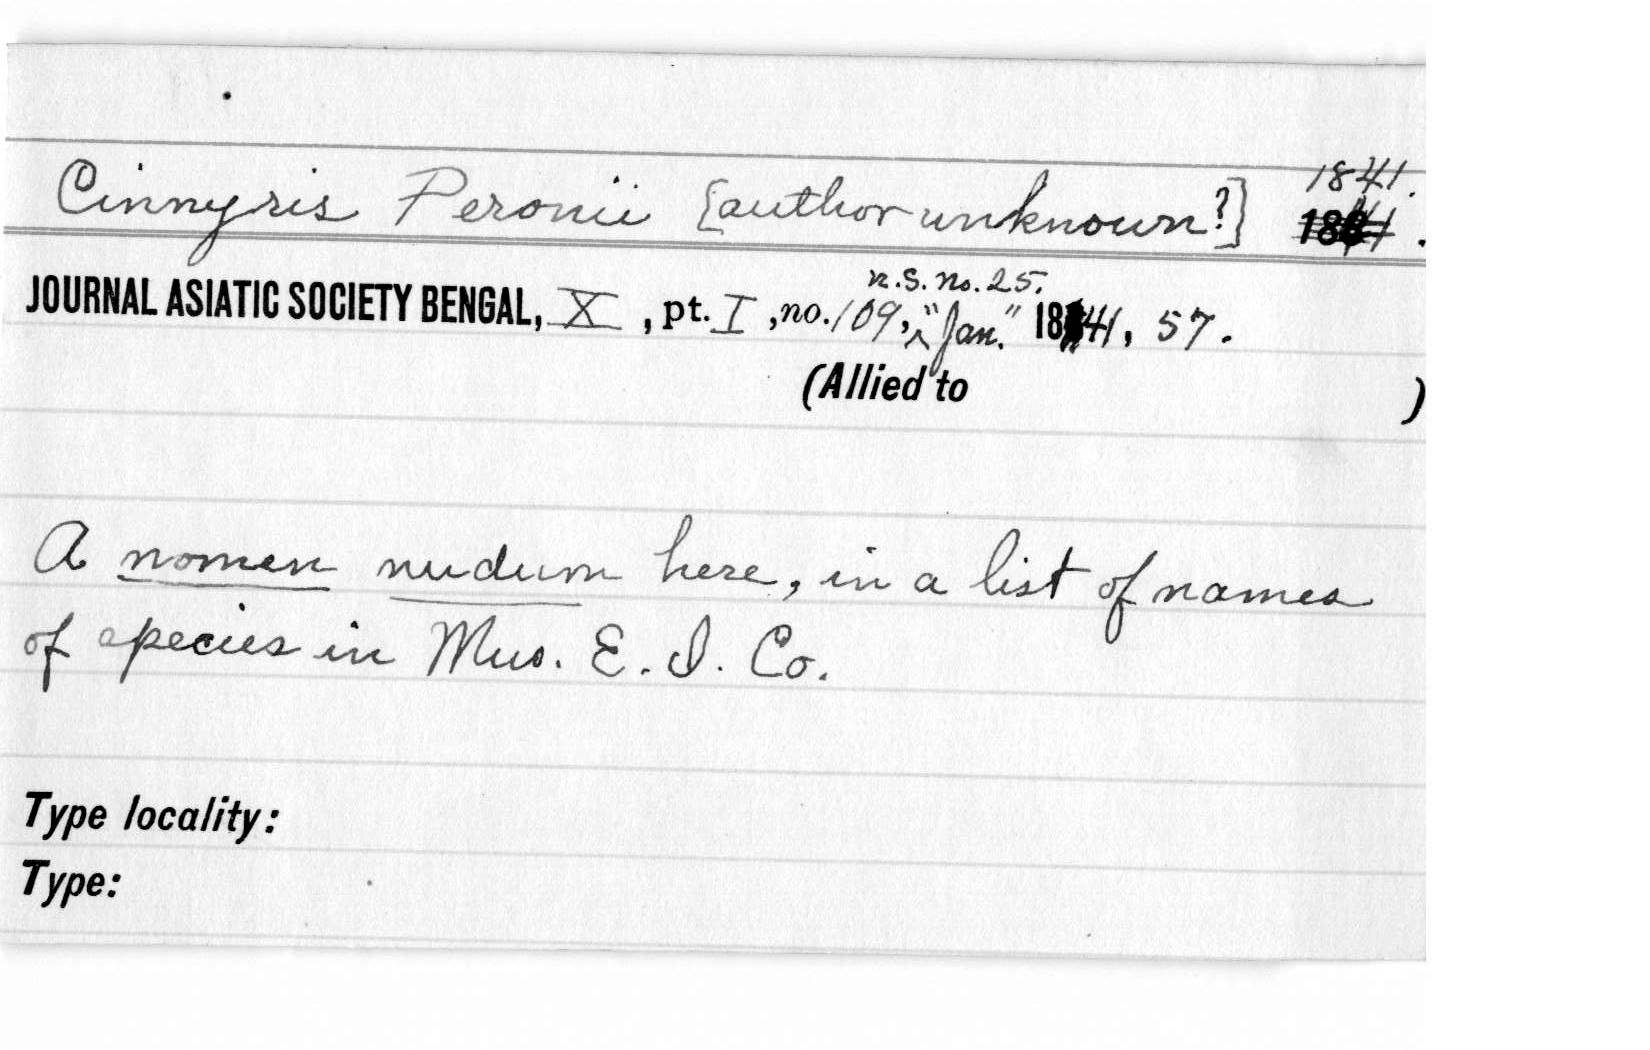 1841.
Cinnyris Peronii [author unknown?] 1841.
n.s. no. 25.
JOURNAL ASIATIC SOCIETY BENGAL, X, pt. I, no. 109, "Jan." 1841, 57.
(Allied to )
A nomen nudum here, in a list of names
of species in Mus. E. I. Co.
Type locality:
Type: